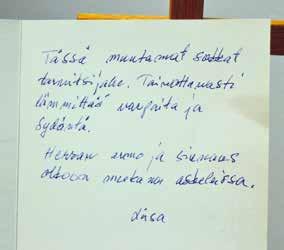 Tässä muutamat sukkat
tarvitsijalle. Toivottavasti
lämmittää varpaita ja
sydäntä.
Herran armo ja siunaus
olkoon mukana askeleissa.
Liisa